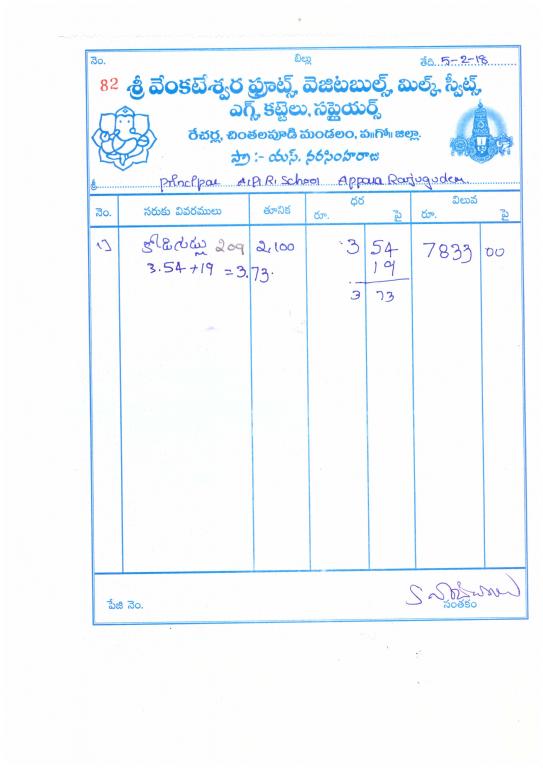 నెం. బిల్లు తేది. 5-2-18
82 శ్రీ వేంకటేశ్వర ఫ్రూట్స్, వెజిటబుల్స్, మిల్క్, స్వీట్స్,
ఎగ్స్, కట్టెలు, సప్లైయర్స్
రేచర్ల, చింతలపూడి మండలం, ప॥గో॥ జిల్లా.
ప్రొ :- యస్. నరసింహరాజు
శ్రీ Principal A.P.R. School Appala Rajugudem
నెం. సరుకు వివరములు తూనిక ధర విలువ
రూ. పై రూ. పై
1) కోడిగుడ్లు 209 2,100 3 54 7833 00
3.54 +19 = 3.73. 19
3 73
పేజి నెం. సంతకం